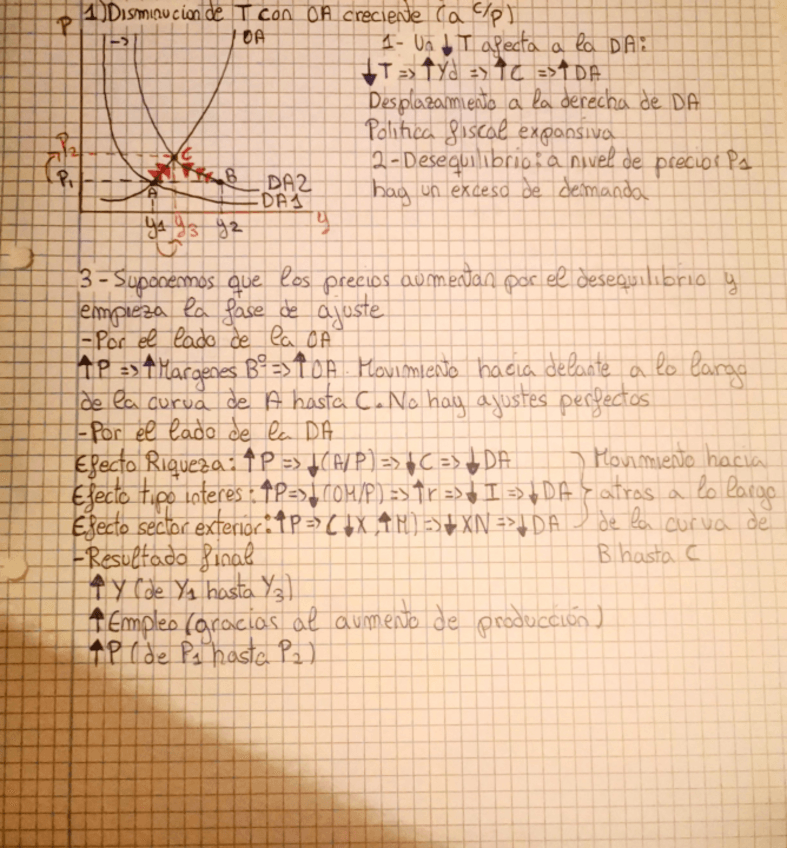 1) Disminucion de T con OA creciente (a c/p)
P
->
OA
P2
P1
C
B
A
DA2
DA1
y1 y3 y2
y
1- Un ↓T afecta a la DA:
↓T => ↑Yd => ↑C => ↑DA
Desplazamiento a la derecha de DA
Politica fiscal expansiva
2-Desequilibrio: a nivel de precios P1
hay un exceso de demanda
3-Suponemos que los precios aumentan por el desequilibrio y
empieza la fase de ajuste
-Por el lado de la OA
↑P => ↑Margenes Bº => ↑OA. Movimiento hacia delante a lo largo
de la curva de A hasta C. No hay ajustes perfectos
-Por el lado de la DA
Efecto Riqueza: ↑P => ↓(A/P) => ↓C => ↓DA
Efecto tipo interes: ↑P => ↓(OM/P) => ↑r => ↓I => ↓DA
Efecto sector exterior: ↑P => (↓X, ↑M) => ↓XN => ↓DA
Movimiento hacia
atras a lo largo
de la curva de
B hasta C
-Resultado final
↑Y (de Y1 hasta Y3)
↑Empleo (gracias al aumento de producción)
↑P (de P1 hasta P2)